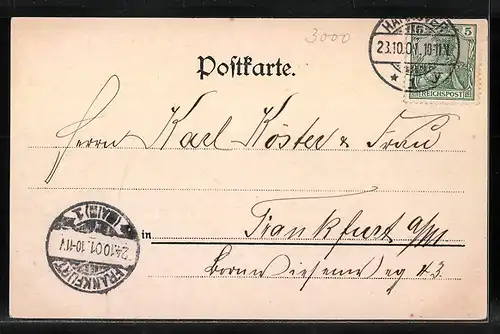 3000
HANNOVER
23.10.01. 10-11 V.
* 1 y *
5
REICHSPOST
Postkarte.
Herrn Karl Köster & Frau
in Frankfurt a/M
Bornwiesenweg 43
FRANKFURT
(MAIN) 1
24.10.01. 10-11V